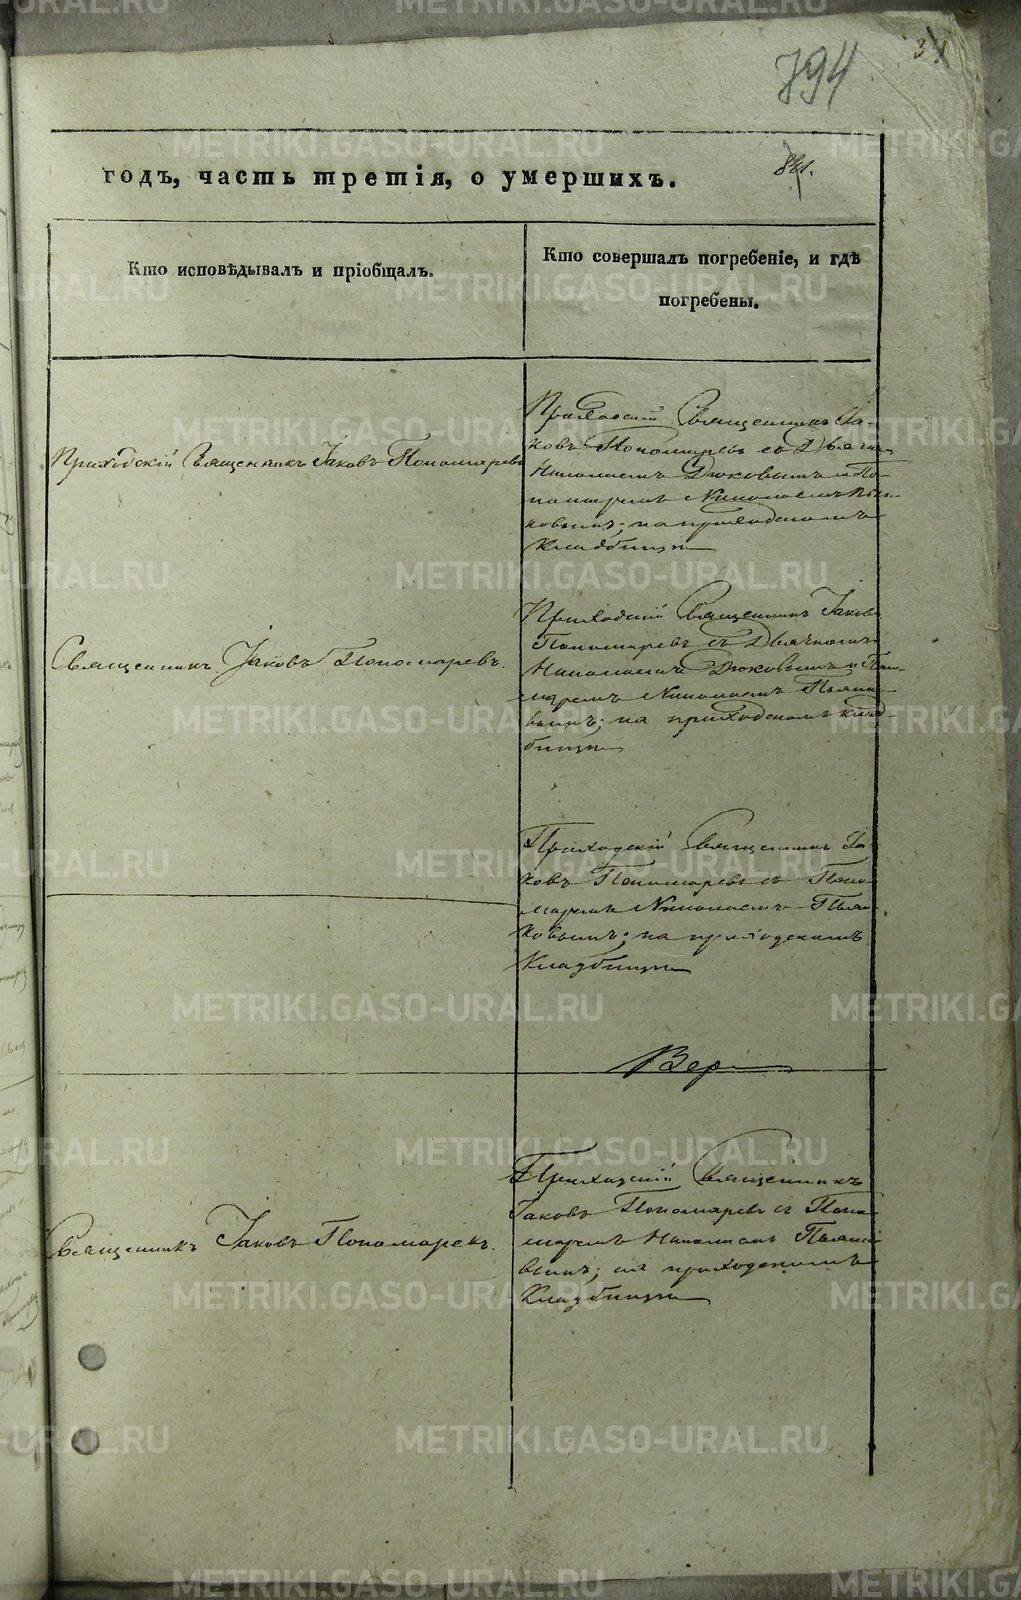 794
34
841.
годъ, часть третія, о умершихъ.
Кто исповѣдывалъ и пріобщалъ.
Кто совершалъ погребеніе, и гдѣ
погребены.
Приходскій Священникъ Іаковъ Пономаревъ
Приходскій Священникъ Іа-
ковъ Пономаревъ съ Дьячкомъ
Николаемъ Дюковымъ и По-
номаремъ Николаемъ
ковымъ; на приходскомъ
Кладбищѣ
Священникъ Іаковъ Пономаревъ.
Приходскій Священникъ Іаковъ
Пономаревъ съ Дьячкомъ
Николаемъ Дюковымъ и Поно-
маремъ Николаемъ Пьянко-
вымъ; на приходскомъ клад-
бищѣ
Приходскій Священникъ Іа-
ковъ Пономаревъ съ Поно-
маремъ Николаемъ Пьян-
ковымъ; на приходскомъ
Кладбищѣ
Вер
Священникъ Іаковъ Пономаревъ.
Приходскій Священникъ
Іаковъ Пономаревъ съ Поно-
маремъ Николаемъ Пьянко-
вымъ; на приходскомъ
Кладбищѣ
METRIKI.GASO-URAL.RU